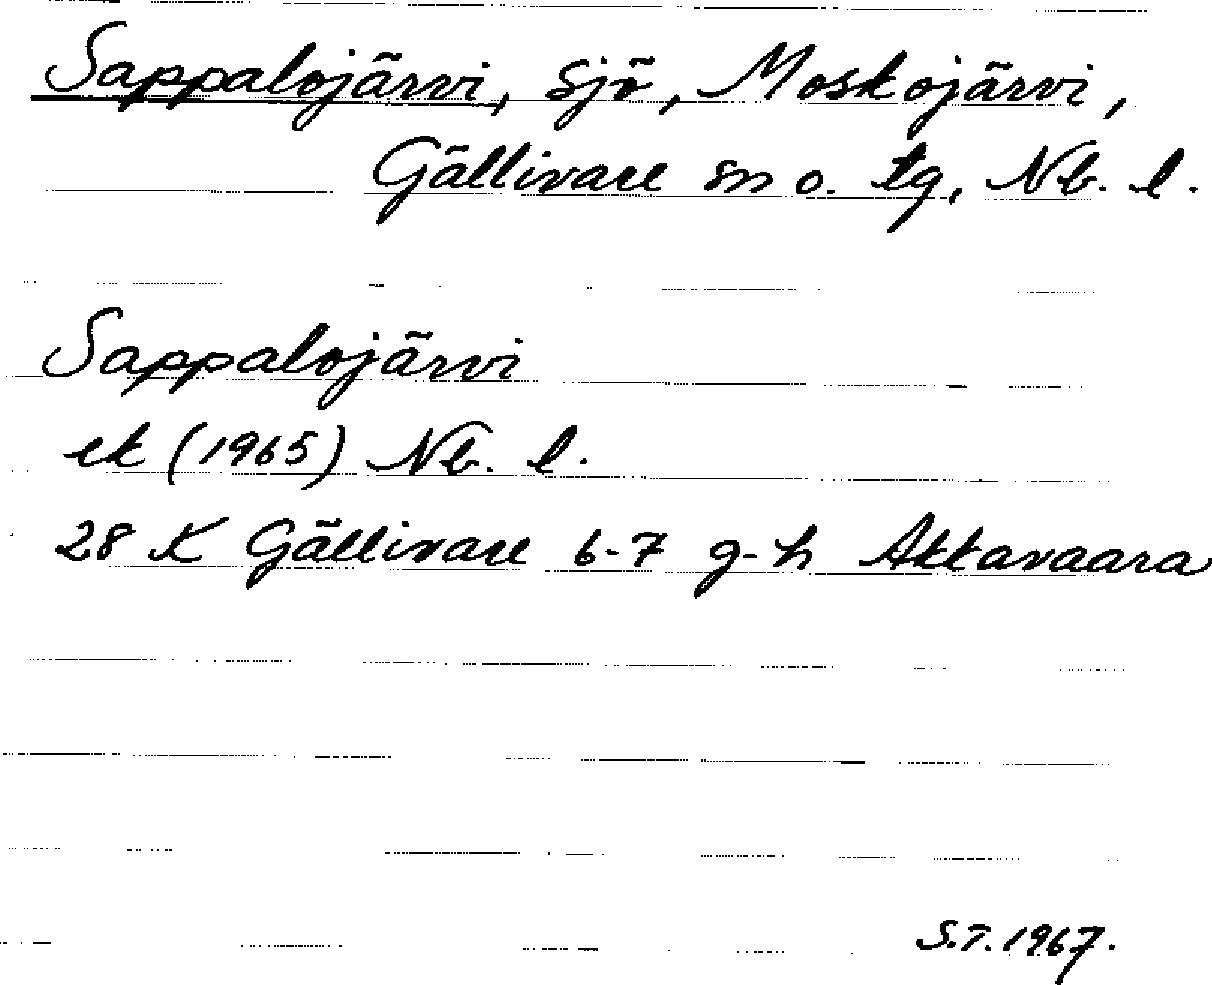 Sappalojärvi, sjö, Moskojärvi,
Gällivare sn o. tg, Nb. l.
Sappalojärvi
ek (1965) Nb. l.
28 K Gällivare 6-7 g-h Akkavaara
S.T. 1967.